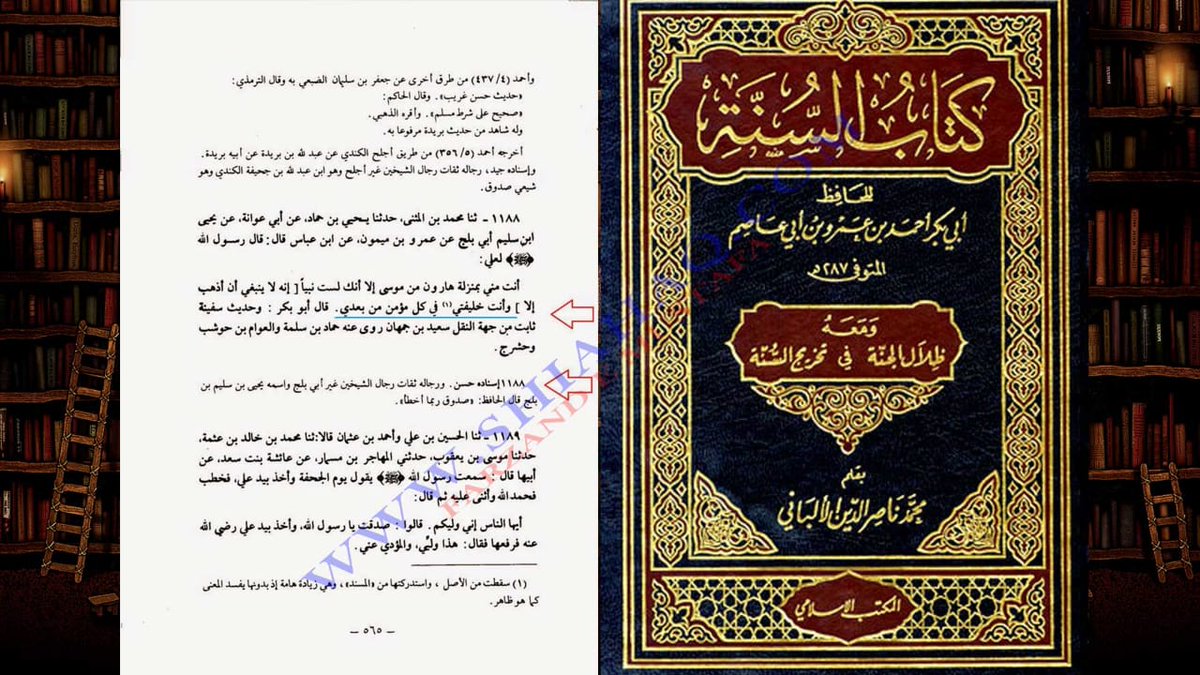 وأحمد (٤٣٧/٤) من طرق أخرى عن جعفر بن سليمان الضبعي به وقال الترمذي:
«حديث حسن غريب». وقال الحاكم:
«صحيح على شرط مسلم». وأقره الذهبي.
وله شاهد من حديث بريدة مرفوعا به.
أخرجه أحمد (٣٥٦/٥) من طريق أجلح الكندي عن عبد الله بن بريدة عن أبيه بريدة.
وإسناده جيد، رجاله ثقات رجال الشيخين غير أجلح وهو ابن عبد الله بن جحيفة الكندي وهو
شيعي صدوق.
١١٨٨ - ثنا محمد بن المثنى، حدثنا يحيى بن حماد، عن أبي عوانة، عن يحيى
ابن سليم أبي بلج عن عمرو بن ميمون، عن ابن عباس قال: قال رسول الله
(ﷺ) لعلي:
أنت مني بمنزلة هارون من موسى إلا أنك لست نبياً [ إنه لا ينبغي أن أذهب
إلا ] وأنت خليفتي(١) في كل مؤمن من بعدي. قال أبو بكر: وحديث سفينة
ثابت من جهة النقل سعيد بن جمهان روى عنه حماد بن سلمة والعوام بن حوشب
وحشرج.
١١٨٨ إسناده حسن. ورجاله ثقات رجال الشيخين غير أبي بلج واسمه يحيى بن سليم بن
بلج قال الحافظ: «صدوق ربما أخطأ».
١١٨٩ - ثنا الحسين بن علي وأحمد بن عثمان قالا: ثنا محمد بن خالد بن عثمة،
حدثنا موسى بن يعقوب، حدثني المهاجر بن مسمار، عن عائشة بنت سعد، عن
أبيها قال: سمعت رسول الله (ﷺ) يقول يوم الجحفة وأخذ بيد علي، فخطب
فحمد الله وأثنى عليه ثم قال:
أيها الناس إني وليكم. قالوا: صدقت يا رسول الله، وأخذ بيد علي رضي الله
عنه فرفعها فقال: هذا وليّي، والمؤدي عني.
(١) سقطت من الأصل، واستدركتها من «المسند»، وهي زيادة هامة إذ بدونها يفسد المعنى
كما هو ظاهر.
- ٥٦٥ -
كتاب السنة
للحافظ
أبي بكر أحمد بن عمرو بن أبي عاصم
المتوفى ٢٨٧ هـ
ومعه
ظلال الجنة في تخريج السنة
بقلم
محمد ناصر الدين الألباني
المكتب الإسلامي